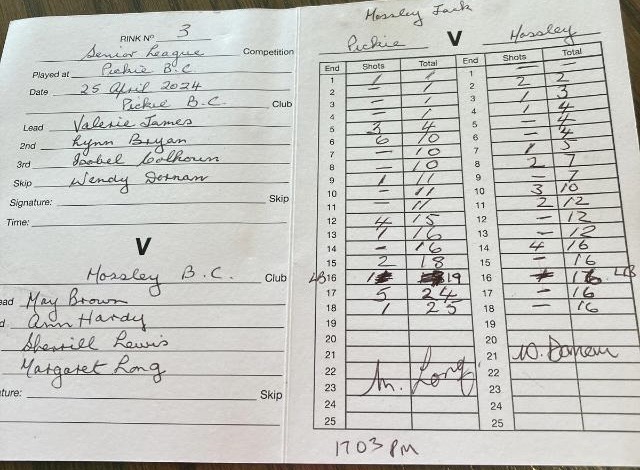 RINK Nº 3
Senior League Competition
Played at Pickie B.C.
Date 25 April 2024
Pickie B.C. Club
Lead Valerie James
2nd Lynn Bryan
3rd Isobel Calhoun
Skip Wendy Dornan
Signature: Skip
Time:
V
Mossley B.C. Club
ead May Brown
d Ann Hardy
Sherrill Lewis
Margaret Long
ture: Skip
Mossley Jack
Pickie V Mossley
End Shots Total End Shots Total
1 1 1 1 – –
2 – 1 2 2 2
3 – 1 3 1 3
4 – 1 4 1 4
5 3 4 5 – 4
6 6 10 6 – 4
7 – 10 7 1 5
8 – 10 8 2 7
9 1 11 9 – 7
10 – 11 10 3 10
11 – 11 11 2 12
12 4 15 12 – 12
13 1 16 13 – 12
14 – 16 14 4 16
15 2 18 15 – 16
16 1 19 16 16
17 5 24 17 – 16
18 1 25 18 – 16
19 19
20 20
21 21 W. Dornan
22 M. Long 22
23 23
24 24
25 25
1703 PM